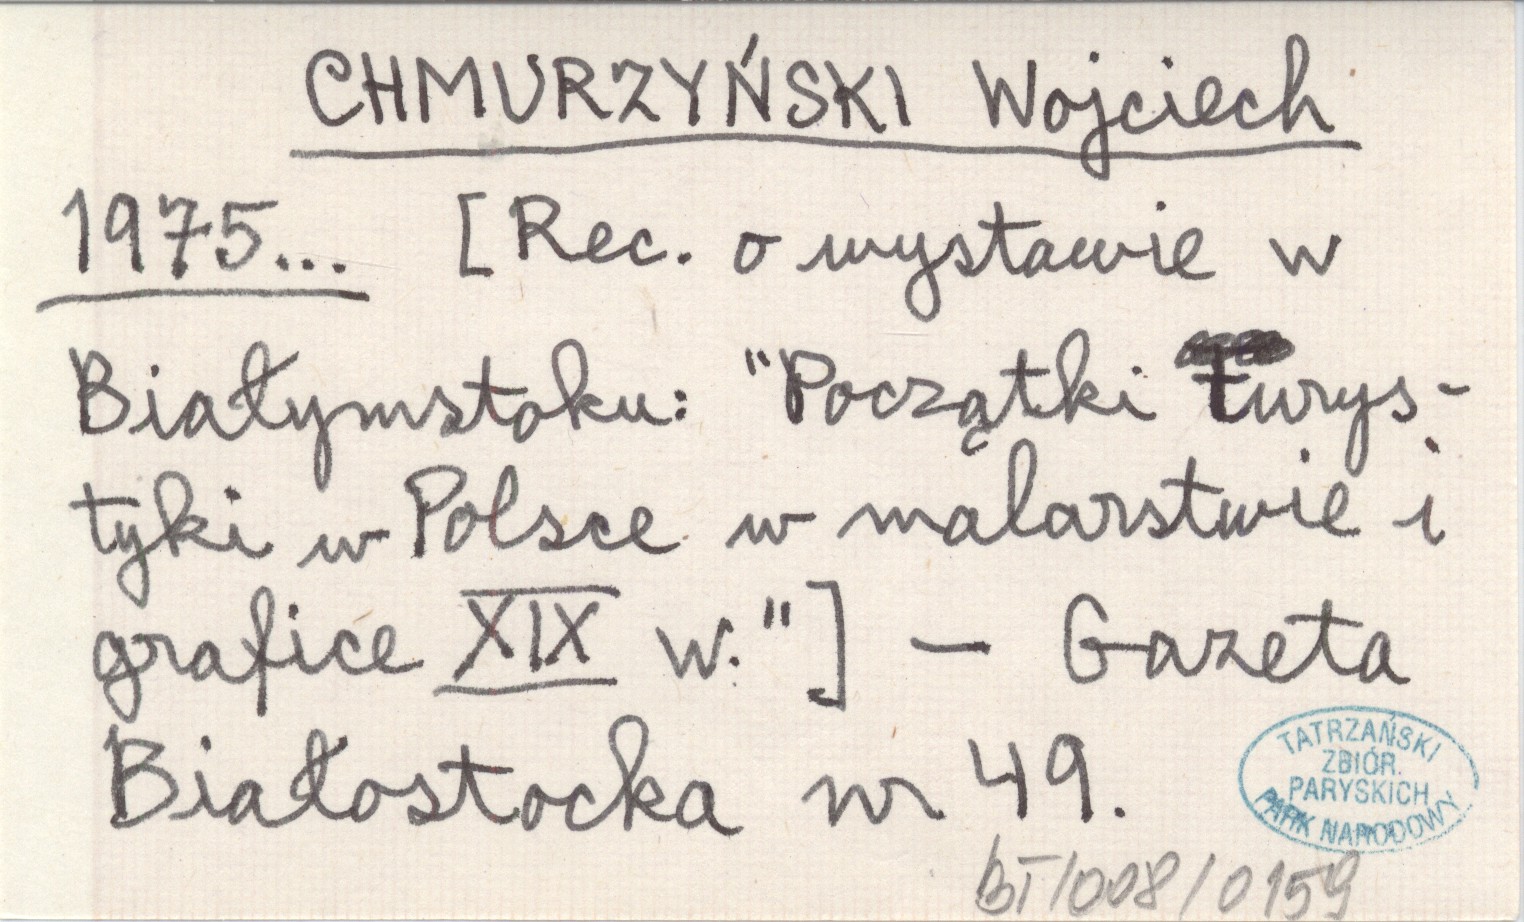 CHMURZYŃSKI Wojciech
1975... [Rec. o wystawie w
Białymstoku: "Początki turys-
tyki w Polsce w malarstwie i
grafice XIX w."] — Gazeta
Białostocka nr 49.
TATRZAŃSKI
ZBIÓR.
PARYSKICH
PARK NARODOWY
BT/008/0159